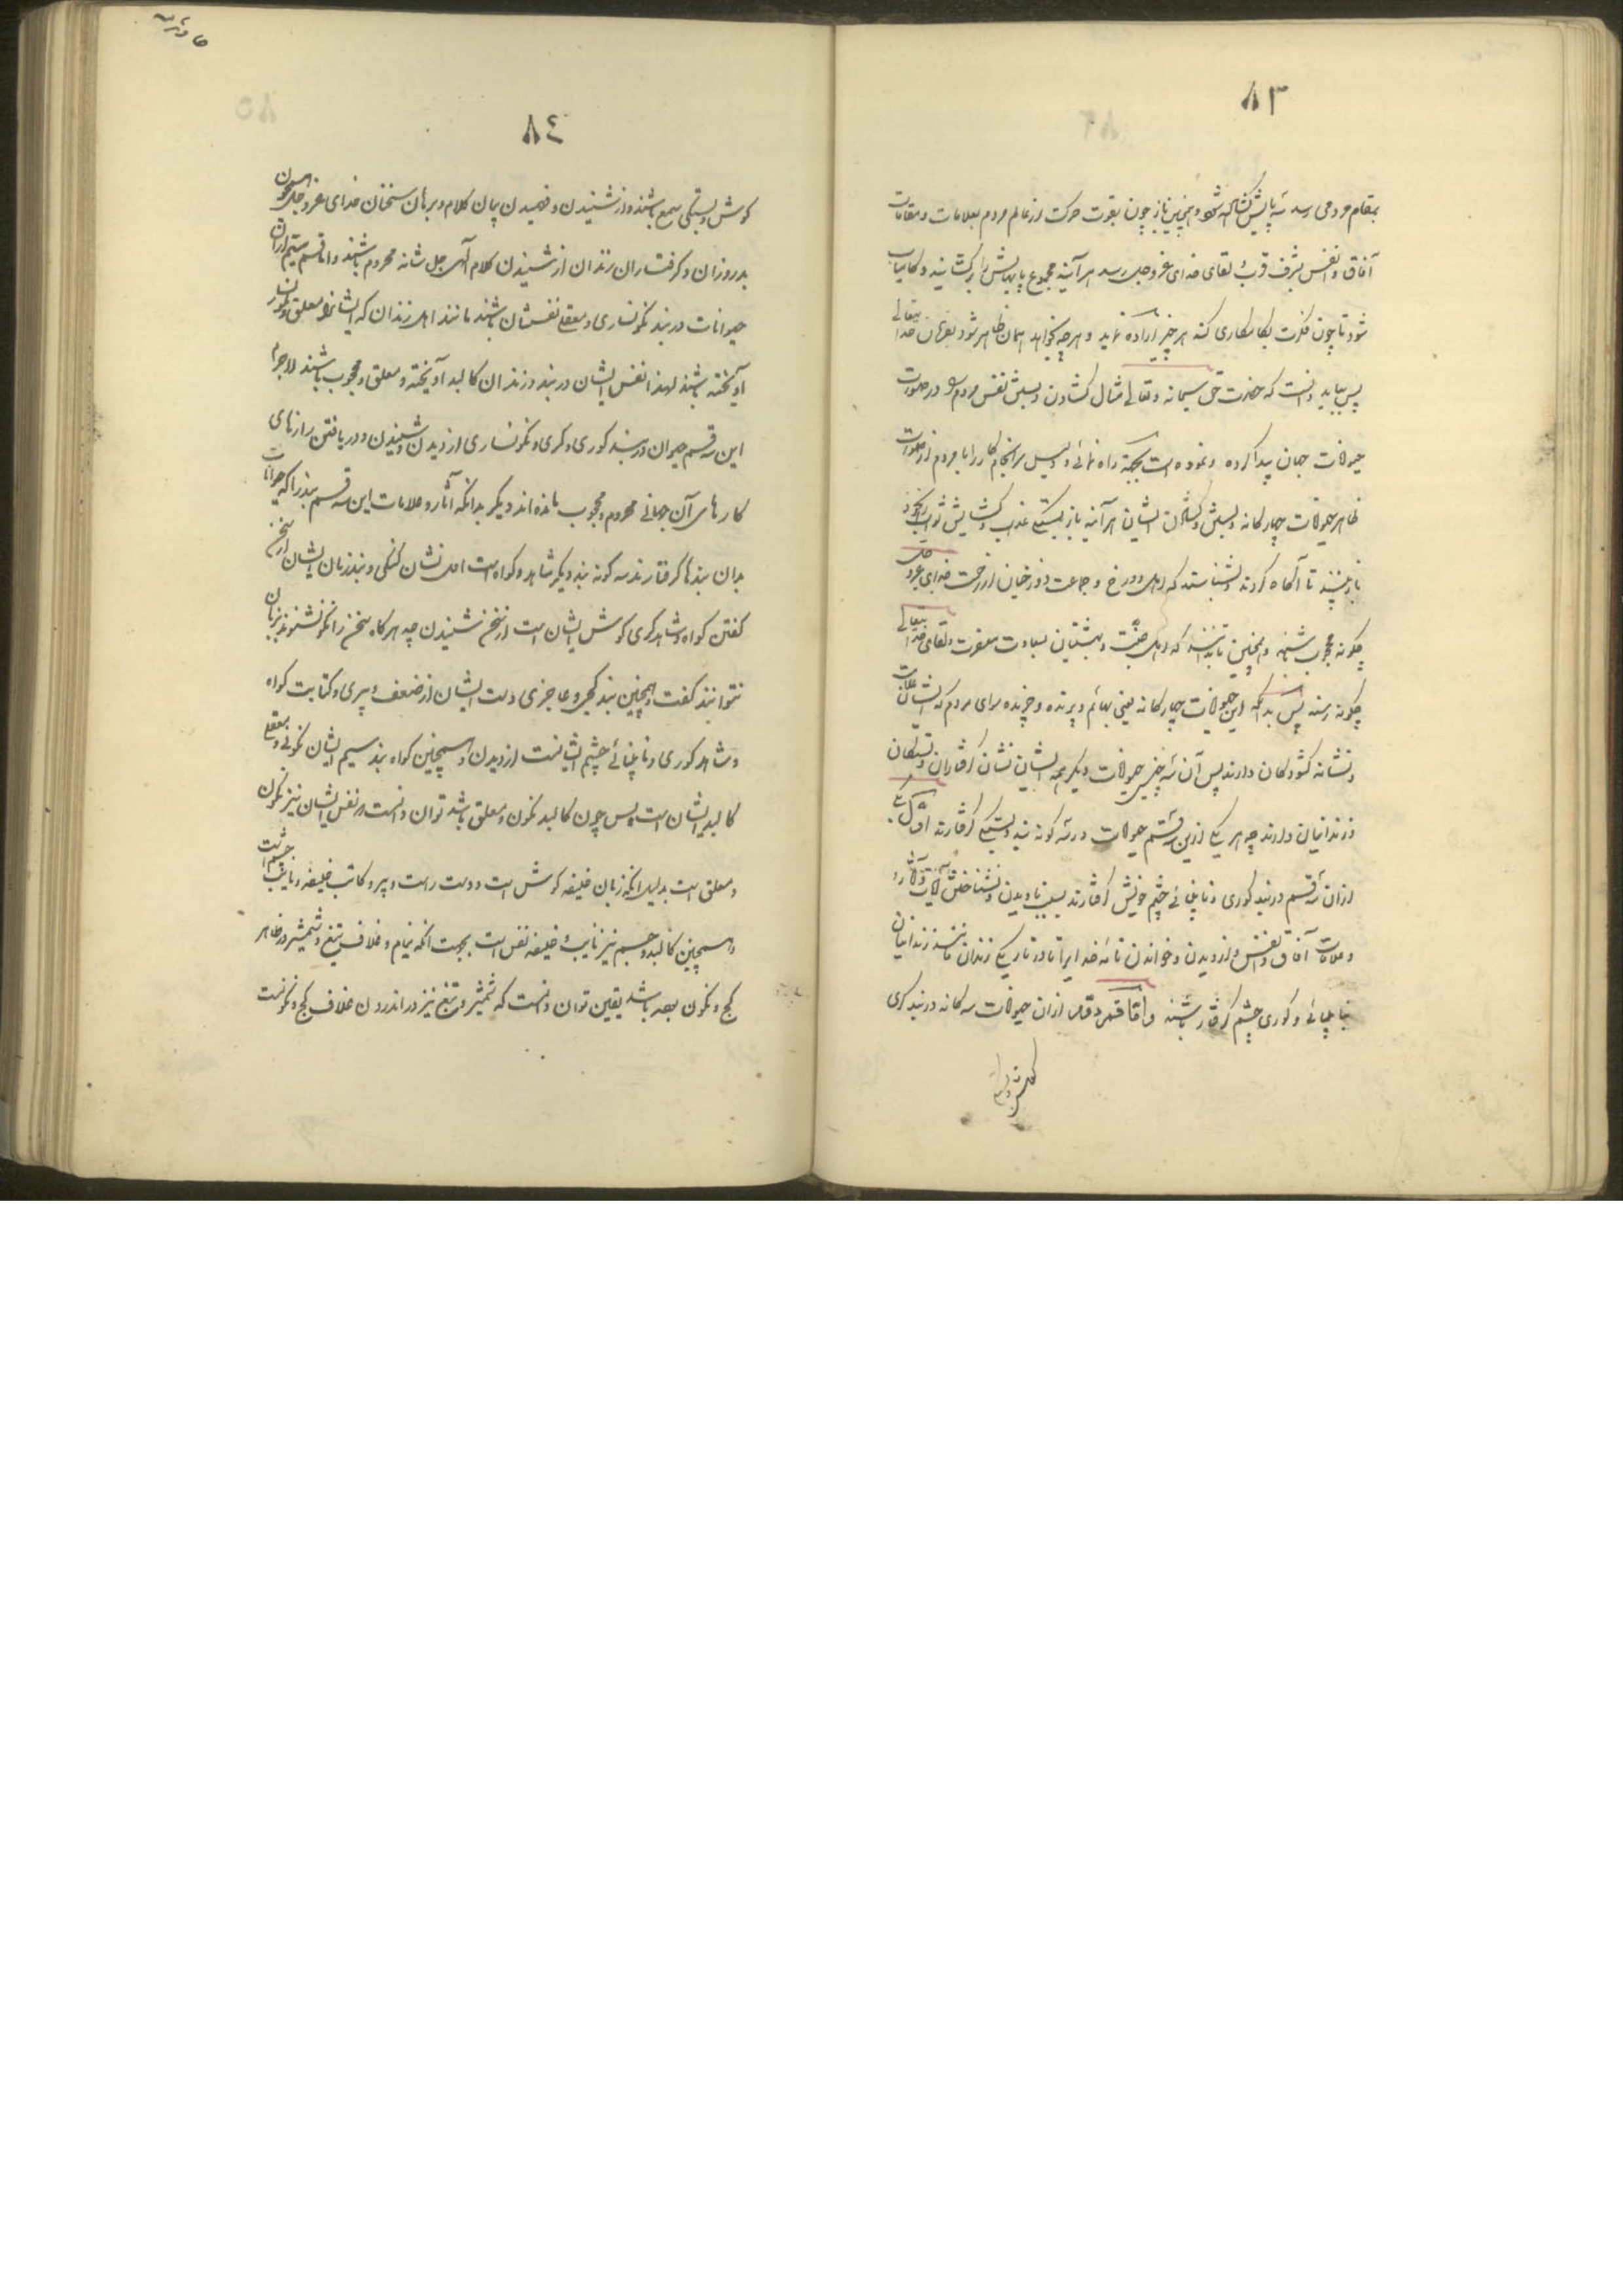 ٨٣
بمقام مردمی رسد سه پایش گشاده شود و همچنین باز چون بقوت حرکت از عالم مردم بعلامات و مقامات
آفاق و انفس بشرف قرب و لقای خدای عز و جل رسد هر آینه مجموع پایهایش را برگشایند و کامیاب
شود تا چون قدرت بکامکاری کند هر چیز اراده نماید و هرچه بخواهد همان ظاهر شود بفرمان خدا تعالی
پس بباید دانست که حضرت حق سبحانه و تعالی مثال گشادن و بستن نفس مردم را در صورت
حیوانات جهان پیدا کرده و نموده است بجهة راه نمائی و دلیل سرانجام کار را تا مردم از صورت
ظاهر حیوانات چهارگانه و بستن و گشادن ایشان هر آینه باز بستگی عذاب و گشایش ثواب خود
باز بینند تا آگاه گردند و بشناسند که اهل دوزخ و جماعت دوزخیان از رحمت خدای عز و جل
چگونه محجوب باشند و همچنین تا بدانند که اهل جنت و بهشتیان بسعادت معرفت و لقای خدا تعالی
چگونه رسند پس بدانکه این حیوانات چهارگانه یعنی بهائم و پرنده و خزنده سرای مردم که ایشان علامت
و نشانه گشودگان دارند پس آن سه جنس حیوانات دیگر همه ایشان نشان گرفتاران و بستگان
و زندانیان دارند چه هر یکی ازین سه قسم حیوانات در سه گونه بند و بستگی گرفتارند اول
ازان سه قسم در بند کوری و نابینائی چشم خویش گرفتارند بسبب نادیدن و نشناختن آیات و آثار
و علامات آفاق و انفس و از دیدن و خواندن نامه خدا ایرا تا در تاریکی زندان مانند زندانیان
نابینائی و کوری چشم گرفتار باشند و اما قسم دوم ازان حیوانات سه گانه در بند کری
٨٤
گوش و بستگی سمع باشند و از شنیدن و فهمیدن بیان کلام و برهان سخنان خدای عز و جل همچون
بدروزان و گرفتاران زندان از شنیدن کلام الهی جل شانه محروم باشند و اما قسم سیم ازان
حیوانات در بند نگونساری و معلقی نفسشان باشند مانند اهل زندان که ایشانرا معلق و نگونسار
آویخته باشند لهذا نفس ایشان در بند و زندان کالبد آویخته و معلق و محجوب باشند لاجرم
این سه قسم حیوان در بند کوری و کری و نگونساری از دیدن و شنیدن و دریافتن رازهای
کارهای آن جهانی محروم و محجوب مانده اند و دیگر بدانکه آثار و علامات این سه قسم بند را که حیوانات
بدان بندها گرفتارند سه گونه بند دیگر شاهد و گواه است اول نشان گنگی و بند زبان ایشان از سخن
گفتن گواه و شاهد کری گوش ایشان است از سخن شنیدن چه هرگاه سخن را نگو نشنوند بزبان
نتوانند گفت و همچنین بند کجی و عاجزی دست ایشان از ضعف دبیری و کتابت گواه
و شاهد کوری و نابینائی چشم ایشانست از دیدن و همچنین گواه بند سیم ایشان نگونی و معلقی
کالبد ایشان است پس چون کالبد نگون و معلق باشد توان دانست که نفس ایشان نیز نگون
و معلق است بدلیل آنکه زبان خلیفه گوش است و دست راست دبیر و کاتب خلیفه و نایب چشم است
و همچنین کالبد و جسم نیز نایب و خلیفه نفس است بجهت آنکه نیام و غلاف تیغ و شمشیر در ظاهر
کج و نگون بوده باشد یقین توان دانست که شمشیر و تیغ نیز در اندرون غلاف کج و نگونست